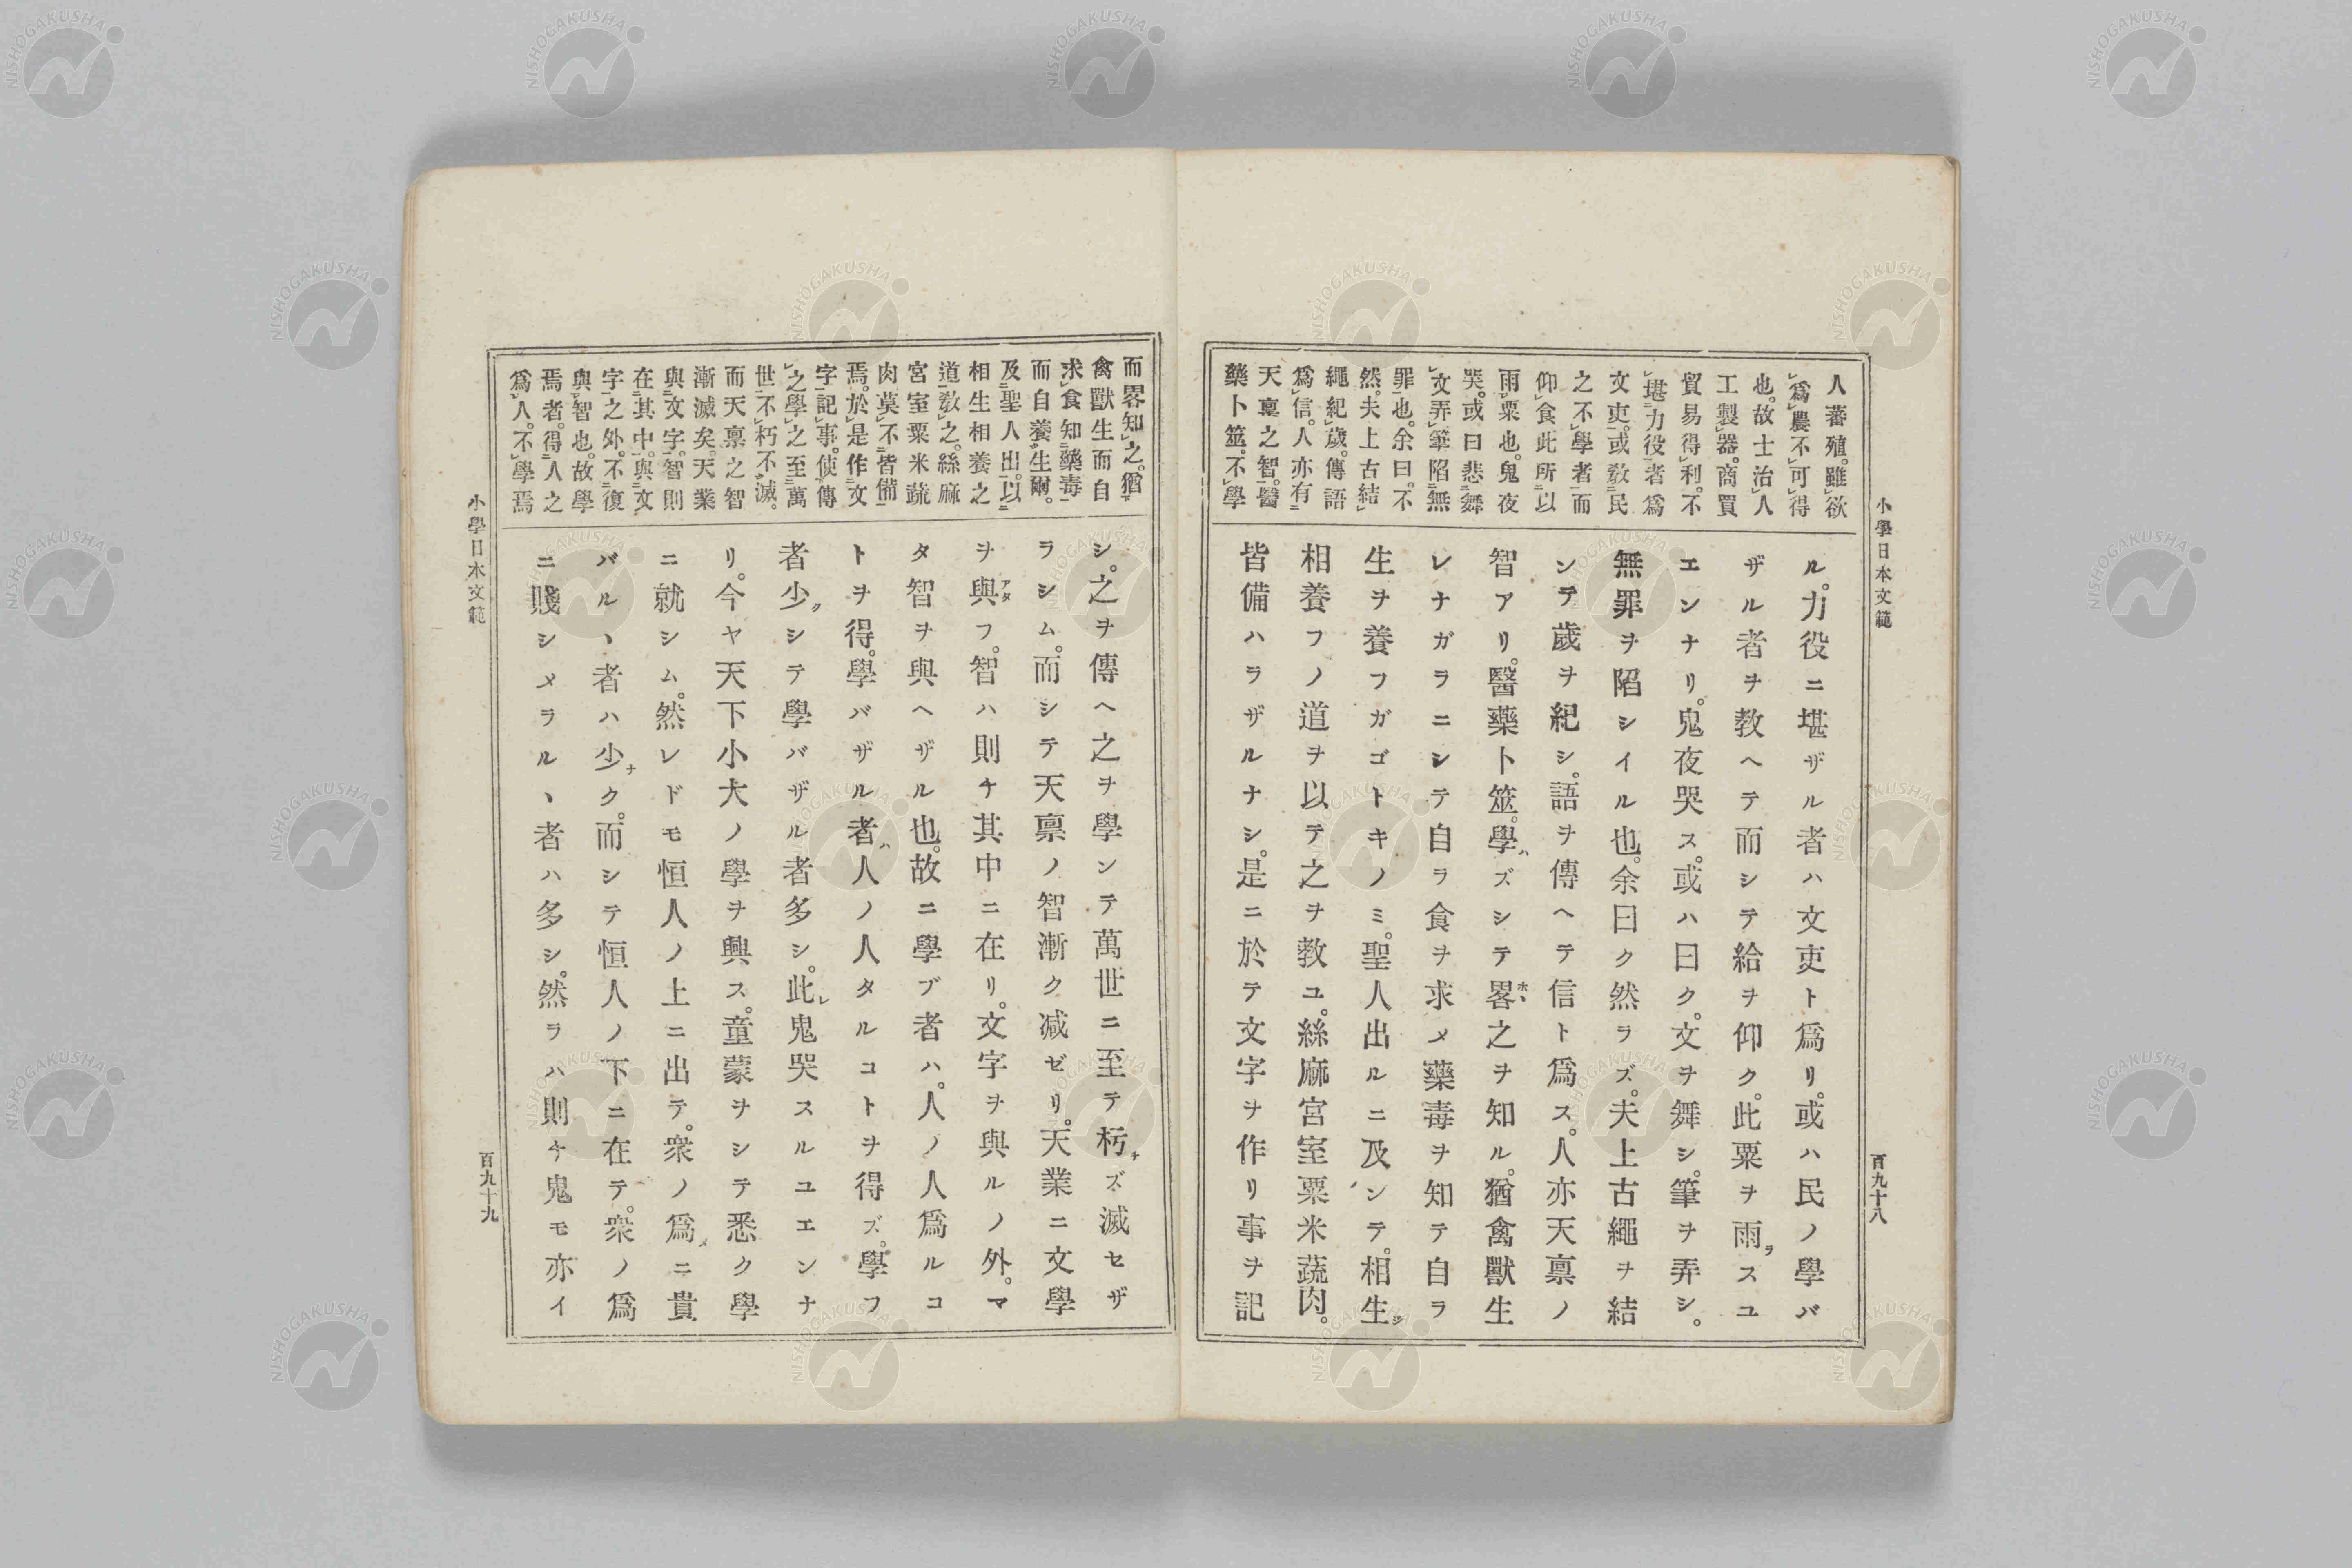 小學日本文範
人蕃殖。雖欲
爲農不可得
也。故士治人
工製器。商買
貿易得利。不
堪力役者爲
文吏。或敎民
之不學者而
仰食此所以
雨粟也。鬼夜
哭。或曰悲舞
文弄筆陷無
罪也。余曰。不
然。夫上古結
繩紀歲。傳語
爲信。人亦有
天稟之智。醫
藥卜筮。不學
ル。力役ニ堪ザル者ハ文吏ト爲リ。或ハ民ノ學バ
ザル者ヲ教ヘテ而シテ給ヲ仰ク。此粟ヲ雨ラスユ
エンナリ。鬼夜哭ス。或ハ曰ク。文ヲ舞シ。筆ヲ弄シ。
無罪ヲ陷シイル也。余曰ク然ラズ。夫上古繩ヲ結
ンデ歲ヲ紀シ。語ヲ傳ヘテ信ト爲ス。人亦天稟ノ
智アリ。醫藥卜筮。學ハズシテ畧ホヽ之ヲ知ル。猶禽獸生
レナガラニシテ自ラ食ヲ求メ藥毒ヲ知テ自ラ
生ヲ養フガゴトキノミ。聖人出ルニ及ンテ。相生シ
相養フノ道ヲ以テ之ヲ教ユ。絲麻宮室粟米蔬肉。
皆備ハラザルナシ。是ニ於テ文字ヲ作リ事ヲ記
百九十八
而畧知之。猶
禽獸生而自
求食知藥毒
而自養生爾。
及聖人出。以
相生相養之
道敎之。絲麻
宮室粟米蔬
肉莫不皆備
焉。於是作文
字記事。使傳
之學之至萬
世不朽不滅。
而天稟之智
漸滅矣。天業
與文字。智則
在其中。與文
字之外。不復
與智也。故學
焉者。得人之
爲人。不學焉
シ。之ヲ傳ヘ之ヲ學ンテ萬世ニ至テ朽チズ滅セザ
ラシム。而シテ天稟ノ智漸ク減ゼリ。天業ニ文學
ヲ與アタフ。智ハ則チ其中ニ在リ。文字ヲ與ルノ外。マ
タ智ヲ與ヘザル也。故ニ學ブ者ハ。人ノ人爲ルコ
トヲ得。學バザル者ハ人ノ人タルコトヲ得ズ。學フ
者少クシテ學バザル者多シ。此レ鬼哭スルユエンナ
リ。今ヤ天下小大ノ學ヲ興ス。童蒙ヲシテ悉ク學
ニ就シム。然レドモ恒人ノ上ニ出テ。衆ノ爲メニ貴
バルヽ者ハ少ナク。而シテ恒人ノ下ニ在テ。衆ノ爲
ニ賤シメラルヽ者ハ多シ。然ラハ則チ鬼モ亦イ
小學日本文範
百九十九